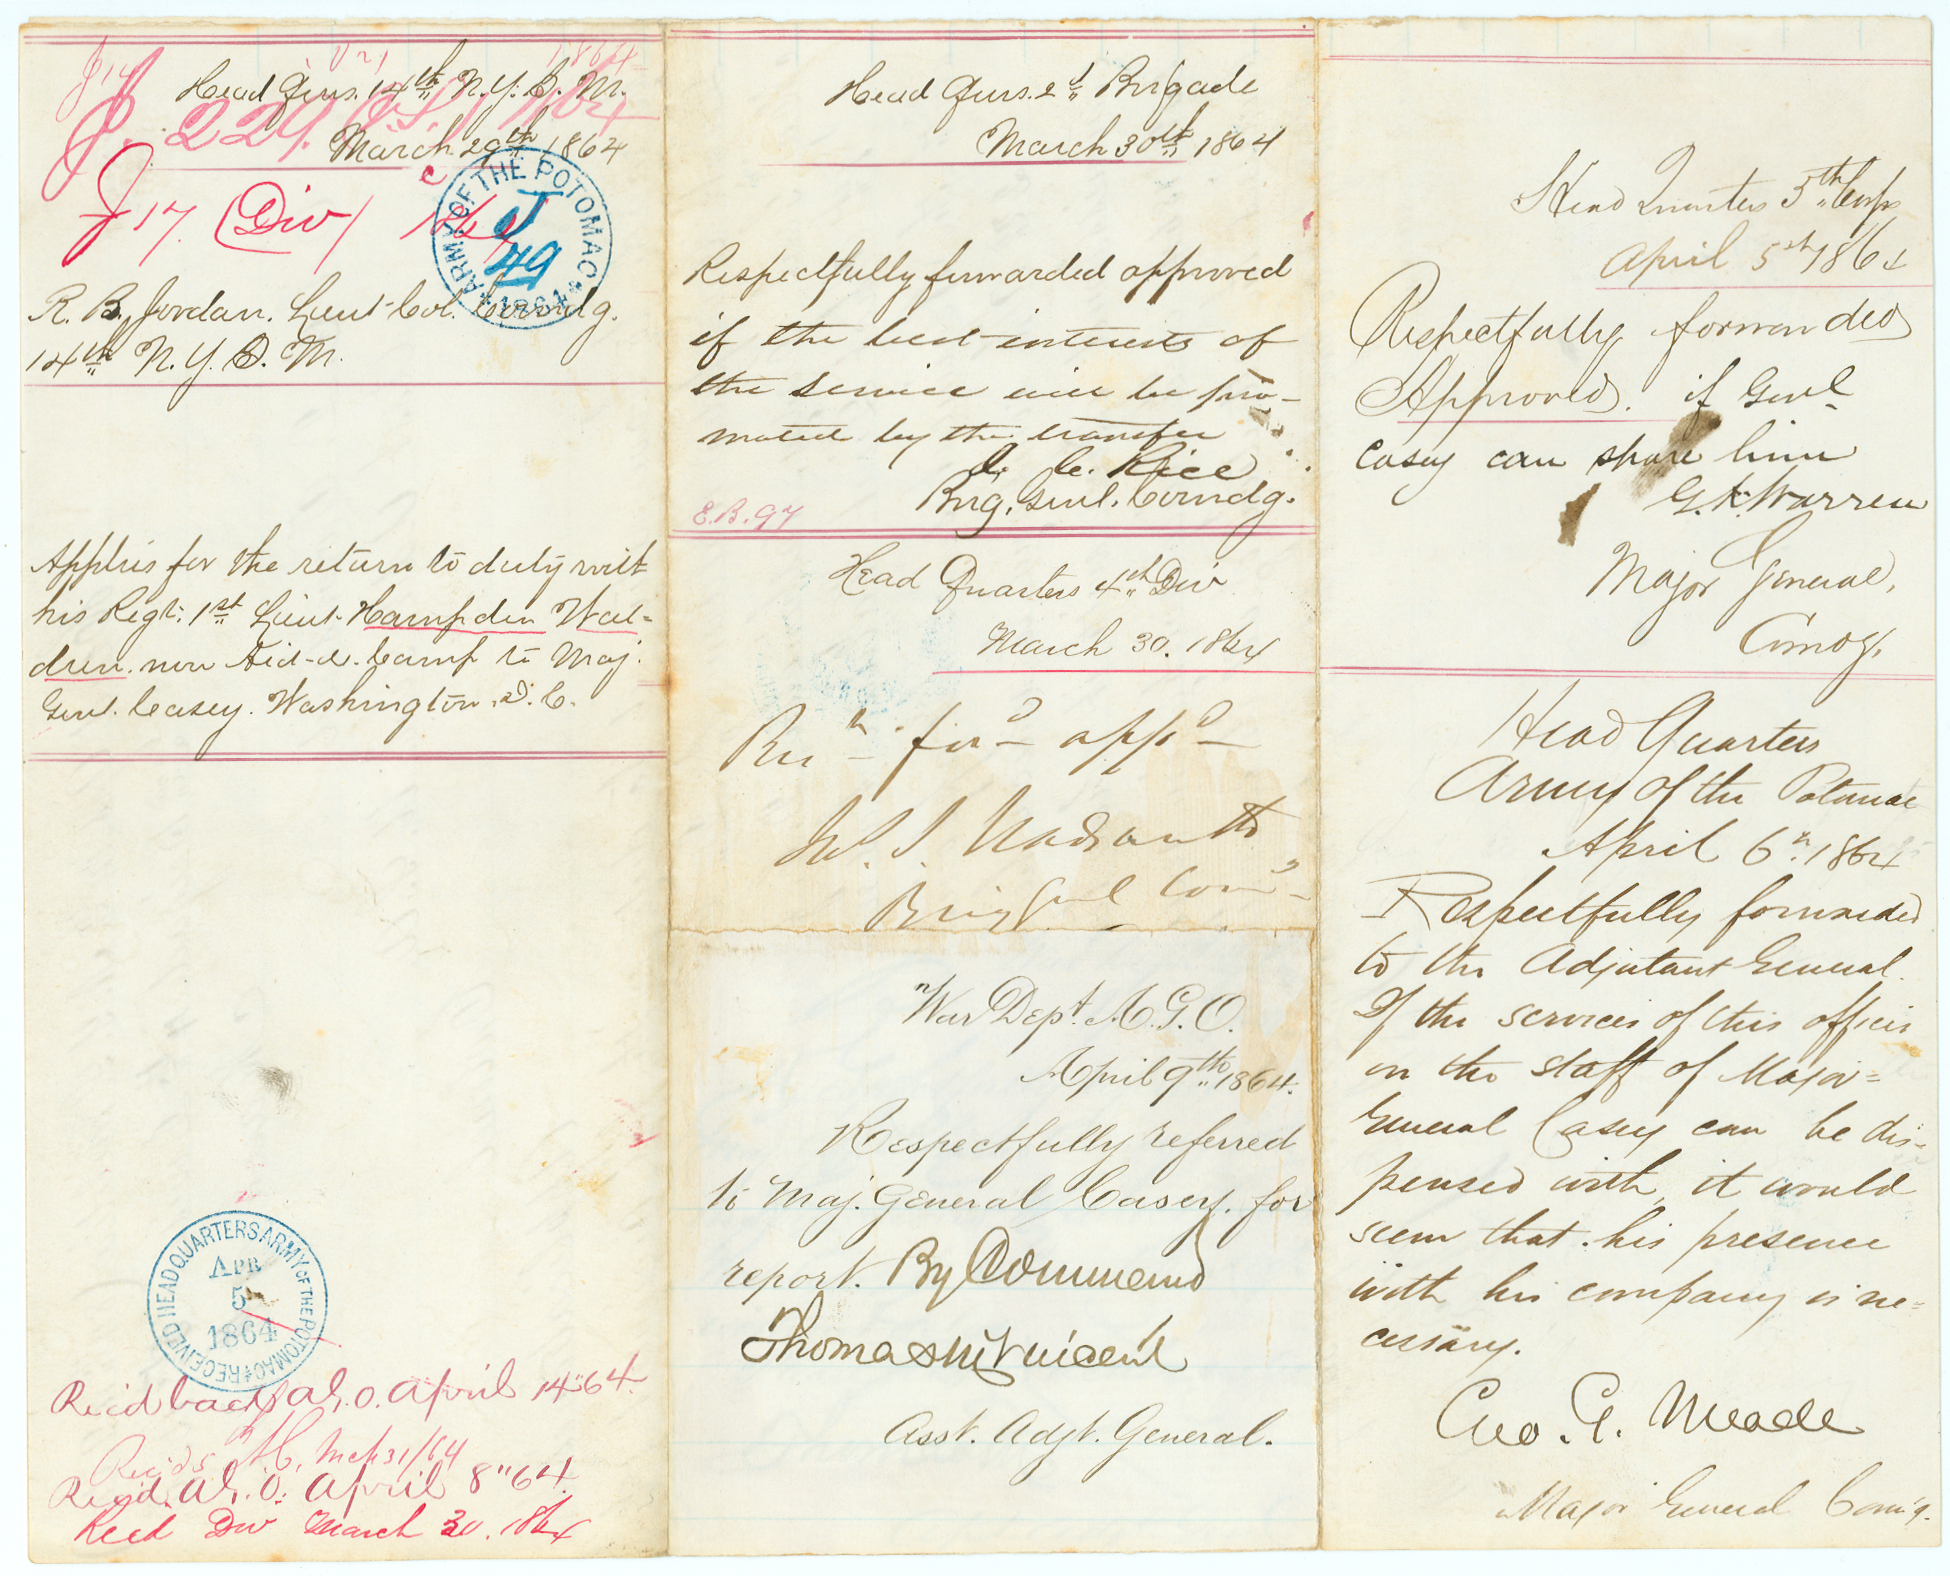 J 17
1864
Head Qurs. 14th N.Y.S.M.
J. 229.
March 29th 1864
J 17. (Div)
ARMY OF THE POTOMAC
J
49
1864
R. B. Jordan. Lieut Col. Comndg.
14th N.Y.S.M.
Applies for the return to duty with
his Regt: 1st Lieut. Hampden Wal-
dren. now Aid-d. Camp to Maj.
Genl. Casey. Washington. D.C.
RECEIVED HEADQUARTERS ARMY OF THE POTOMAC
APR
5
1864
Rec'd back A.G.O. April 14" 64.
Rec'd 5 A.C. Mch 31/64
Recd. A.G.O. April 8" 64.
Recd Div March 30. 1864
Head Qurs. 2d Brigade
March 30th 1864
Respectfully forwarded approved
if the best interests of
the service will be pro-
moted by the transfer
J. C. Rice
Brig. Genl. Comndg.
E.B. 97
Head Quarters 4th Div
March 30. 1864
for'd app'd
Brig Genl Com'd
War Dept. A.G.O.
April 9th 1864.
Respectfully referred
to Maj. General Casey. for
report. By Command
Thomas M Vincent
Asst. Adjt. General.
Head Quarters 5th Corps
April 5th 1864
Respectfully forwarded
Approved. if Genl
Casey can spare him
G.K. Warren
Major General,
Comdg.
Head Quarters
Army of the Potomac
April 6th 1864
Respectfully forwarded
to the Adjutant General.
If the services of this officer
on the staff of Major=
General Casey can be dis-
pensed with, it would
seem that his presence
with his company is ne=
cessary.
Geo. G. Meade
Major General Com'g.